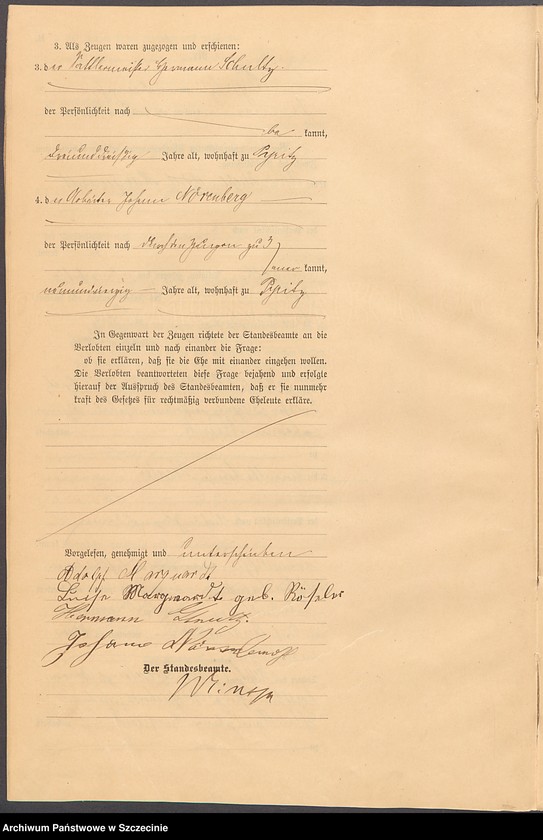 3. Als Zeugen waren zugezogen und erschienen:
3. der Sattlermeister Hermann Schultz
der Persönlichkeit nach
be kannt,
dreiunddreißig Jahre alt, wohnhaft zu Pyritz
4. der Arbeiter Johann Nörenberg
der Persönlichkeit nach durch den Zeugen zu 3
aner kannt,
Jahre alt, wohnhaft zu Pyritz
In Gegenwart der Zeugen richtete der Standesbeamte an die
Verlobten einzeln und nach einander die Frage:
ob sie erklären, daß sie die Ehe mit einander eingehen wollen.
Die Verlobten beantworteten diese Frage bejahend und erfolgte
hierauf der Ausspruch des Standesbeamten, daß er sie nunmehr
kraft des Gesetzes für rechtmäßig verbundene Eheleute erkläre.
Vorgelesen, genehmigt und unterschrieben
Adolf Marquardt
Luise Marquardt geb. Röseler
Hermann
Johann Nörenberg
Der Standesbeamte.
Archiwum Państwowe w Szczecinie